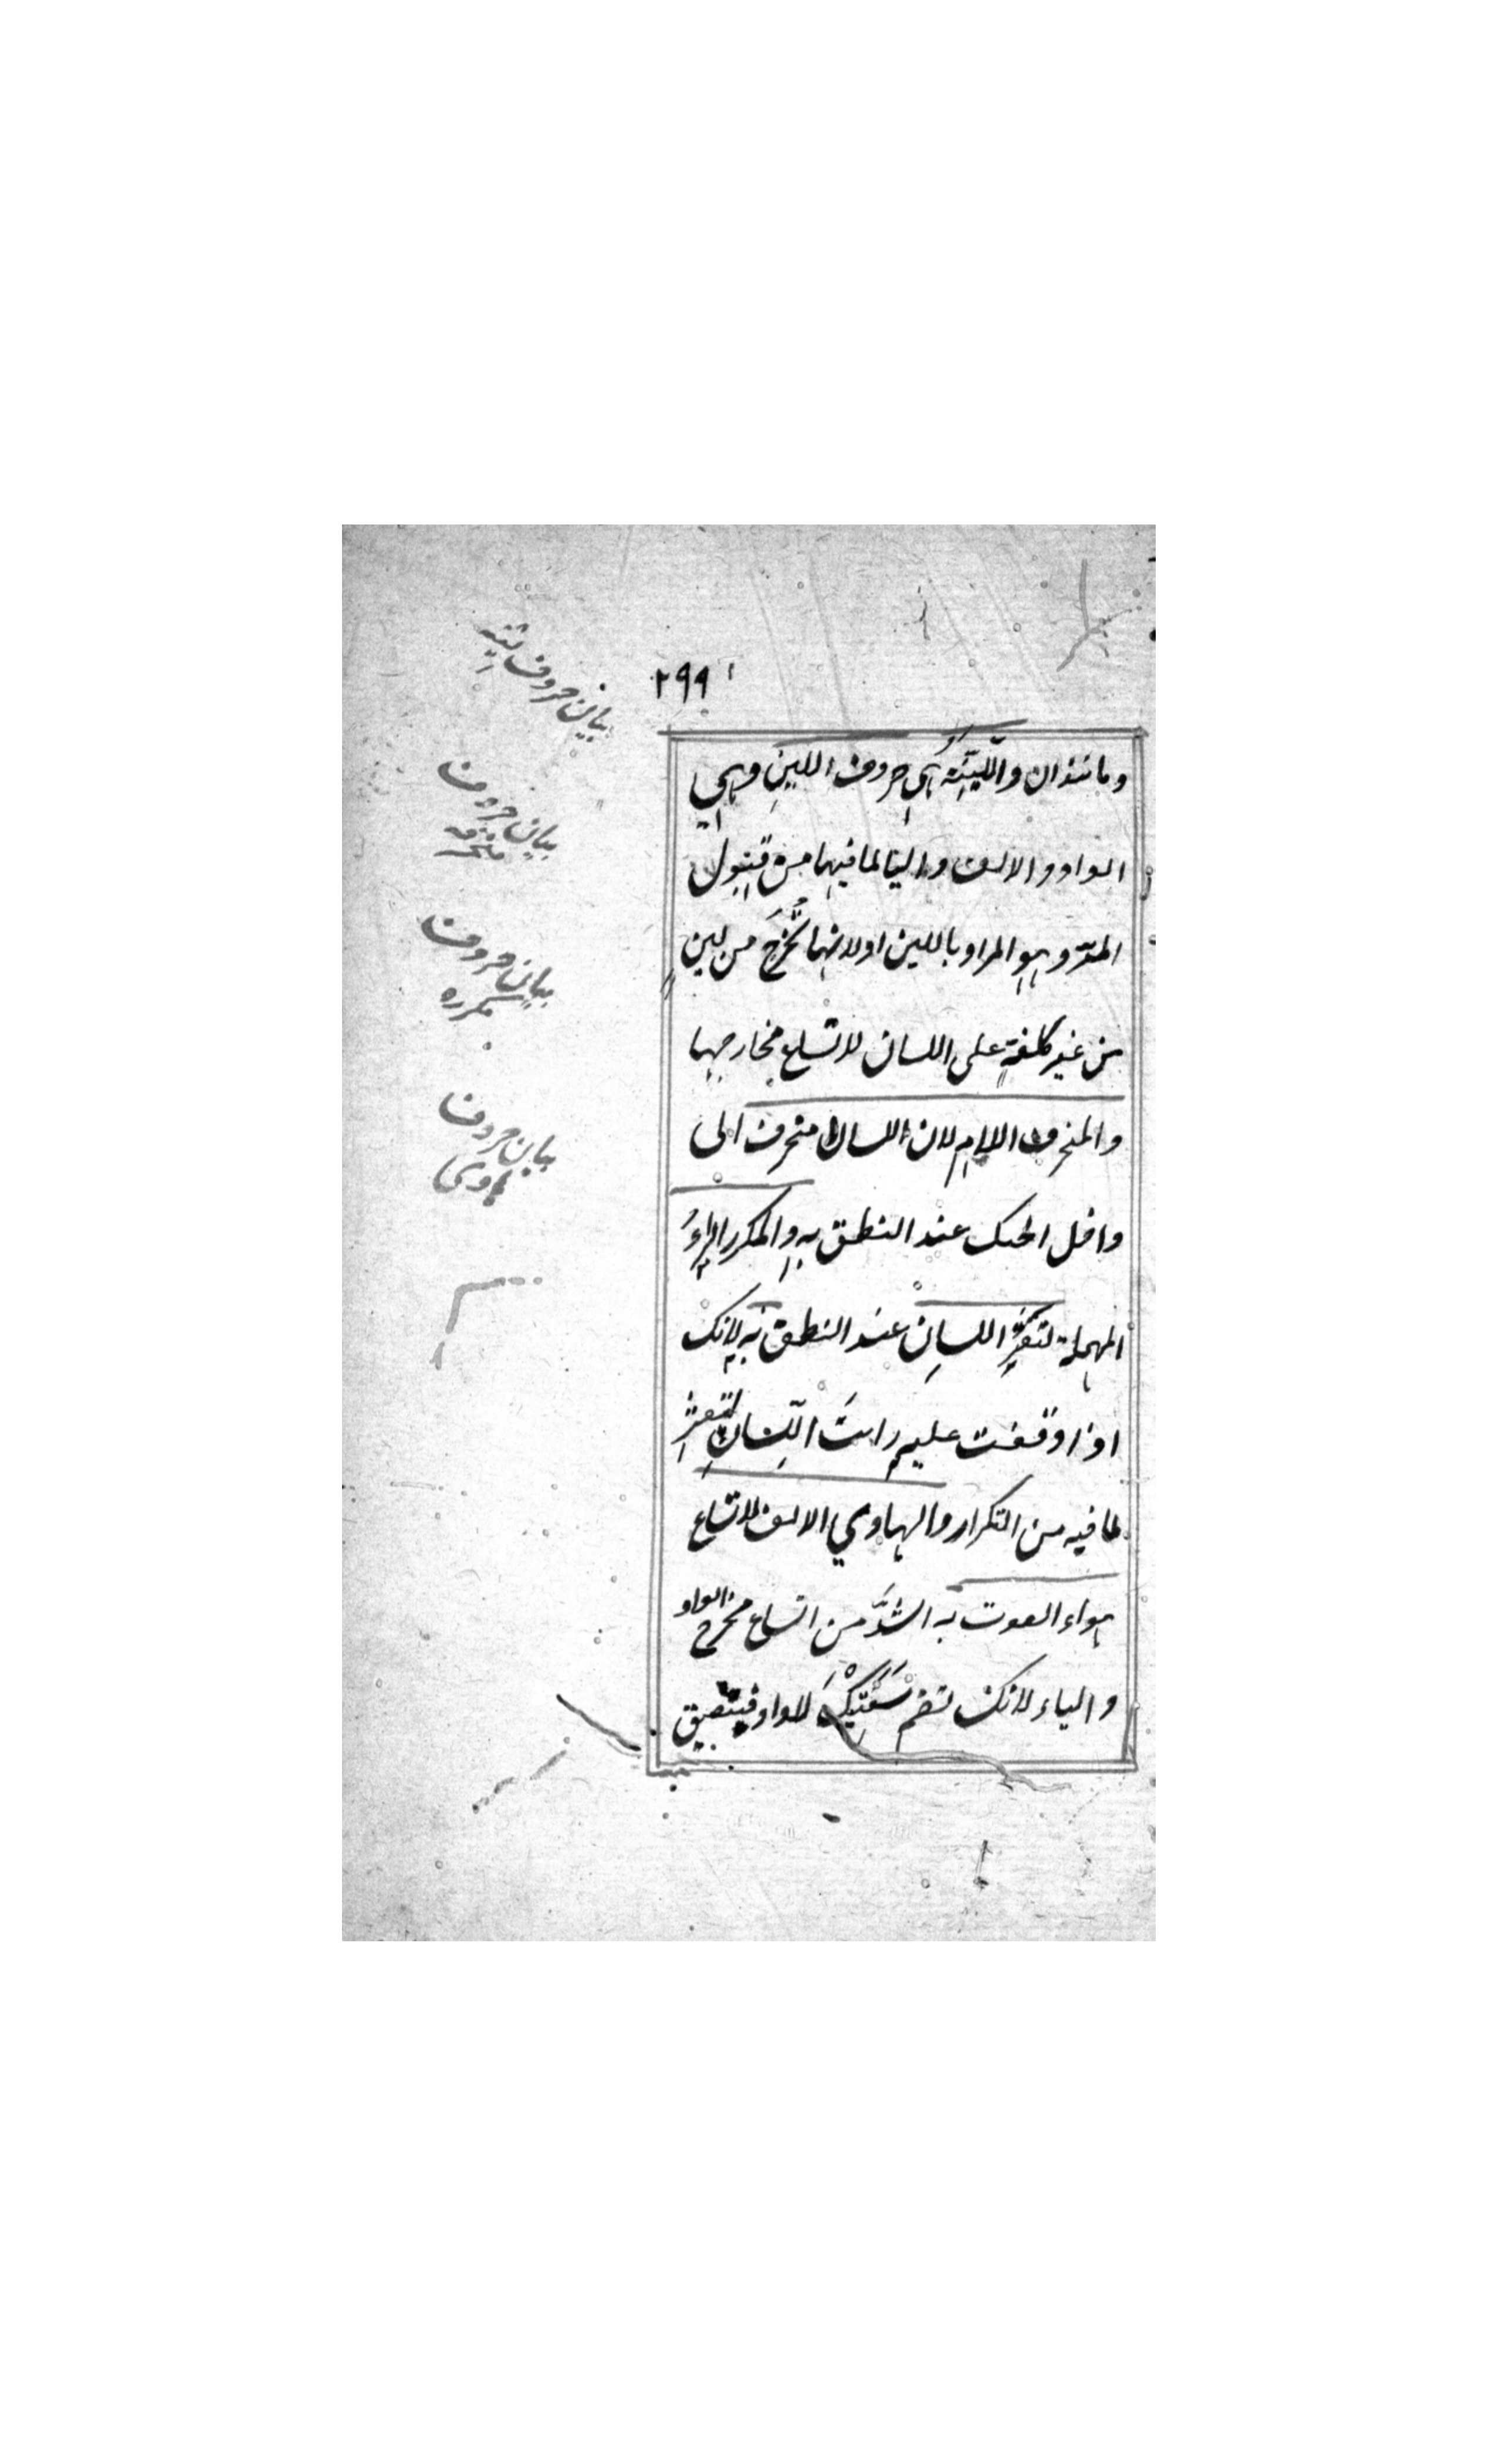 ٢٩٩
وما شذان واللَّيِّنَةُ أي حروف اللين وهي
الواو والالف واليا لما فيها من قبول
المدّ وهو المراد باللين او لانها تخرُجَ من لينٍ
من غير كلفةٍ على اللسان لاتساع مخارجها
والمنحرف اللام لان اللسان منحرف الى
داخل الحنك عند النطق به والمكرر الراءُ
المهملة لتعثّرِ اللسانِ عند النطق به لانك
اذا وقفت عليه رايتَ اللِّسَانِ يتعثّر
لما فيه من التكرار والهاوي الالف لاتساع
هواء الصوت به اشدَّ من اتساع مخرج الواو
والياء لانك تضم شَفَتَيْكَ للواو فيتضيق
بيان حروف لينه
بيان حروف
منحرفه
بيان حروف
مكرره
بيان حروف
هاوى